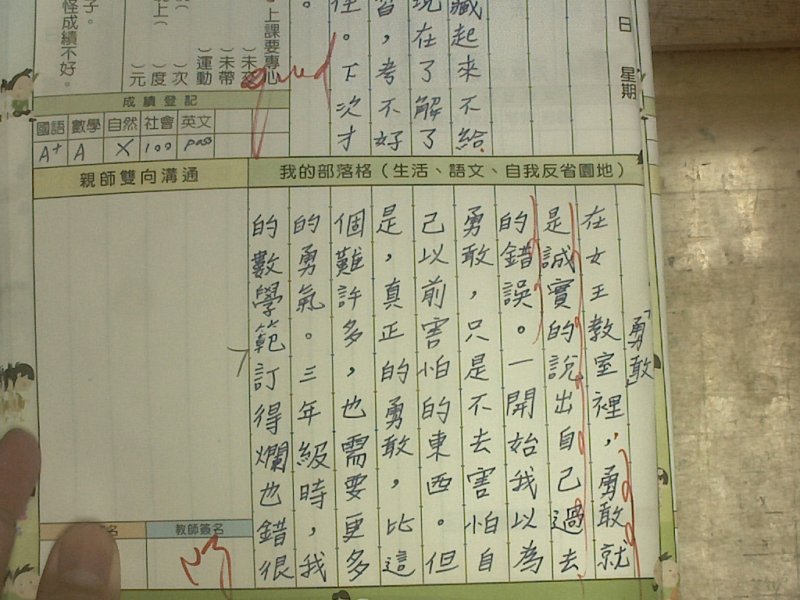 日 星期
藏起來不給
現在了解了
習，考不好
住。下次才
good
上課要專心
（ ）未帶
（ ）運動
（ ）次
（ ）度
（ ）元
怪成績不好。
成績登記
國語 數學 自然 社會 英文
A+ A X 100 pass
親師雙向溝通
我的部落格（生活、語文、自我反省園地）
「勇敢」
在女王教室裡，勇敢就
是誠實的說出自己過去
的錯誤。一開始我以為
勇敢，只是不去害怕自
己以前害怕的東西。但
是，真正的勇敢，比這
個難許多，也需要更多
的勇氣。三年級時，我
的數學範訂得爛也錯很
教師簽名